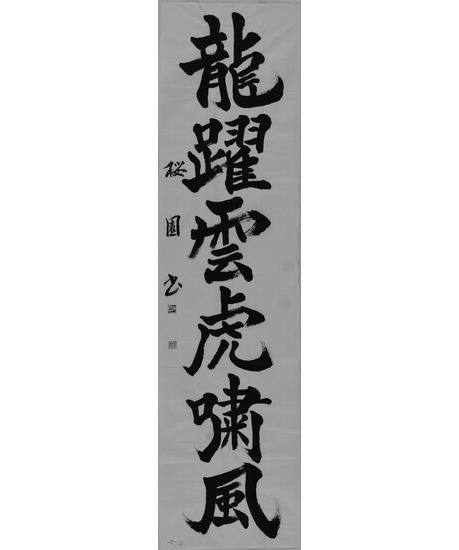 龍躍雲虎嘯風
桜園书